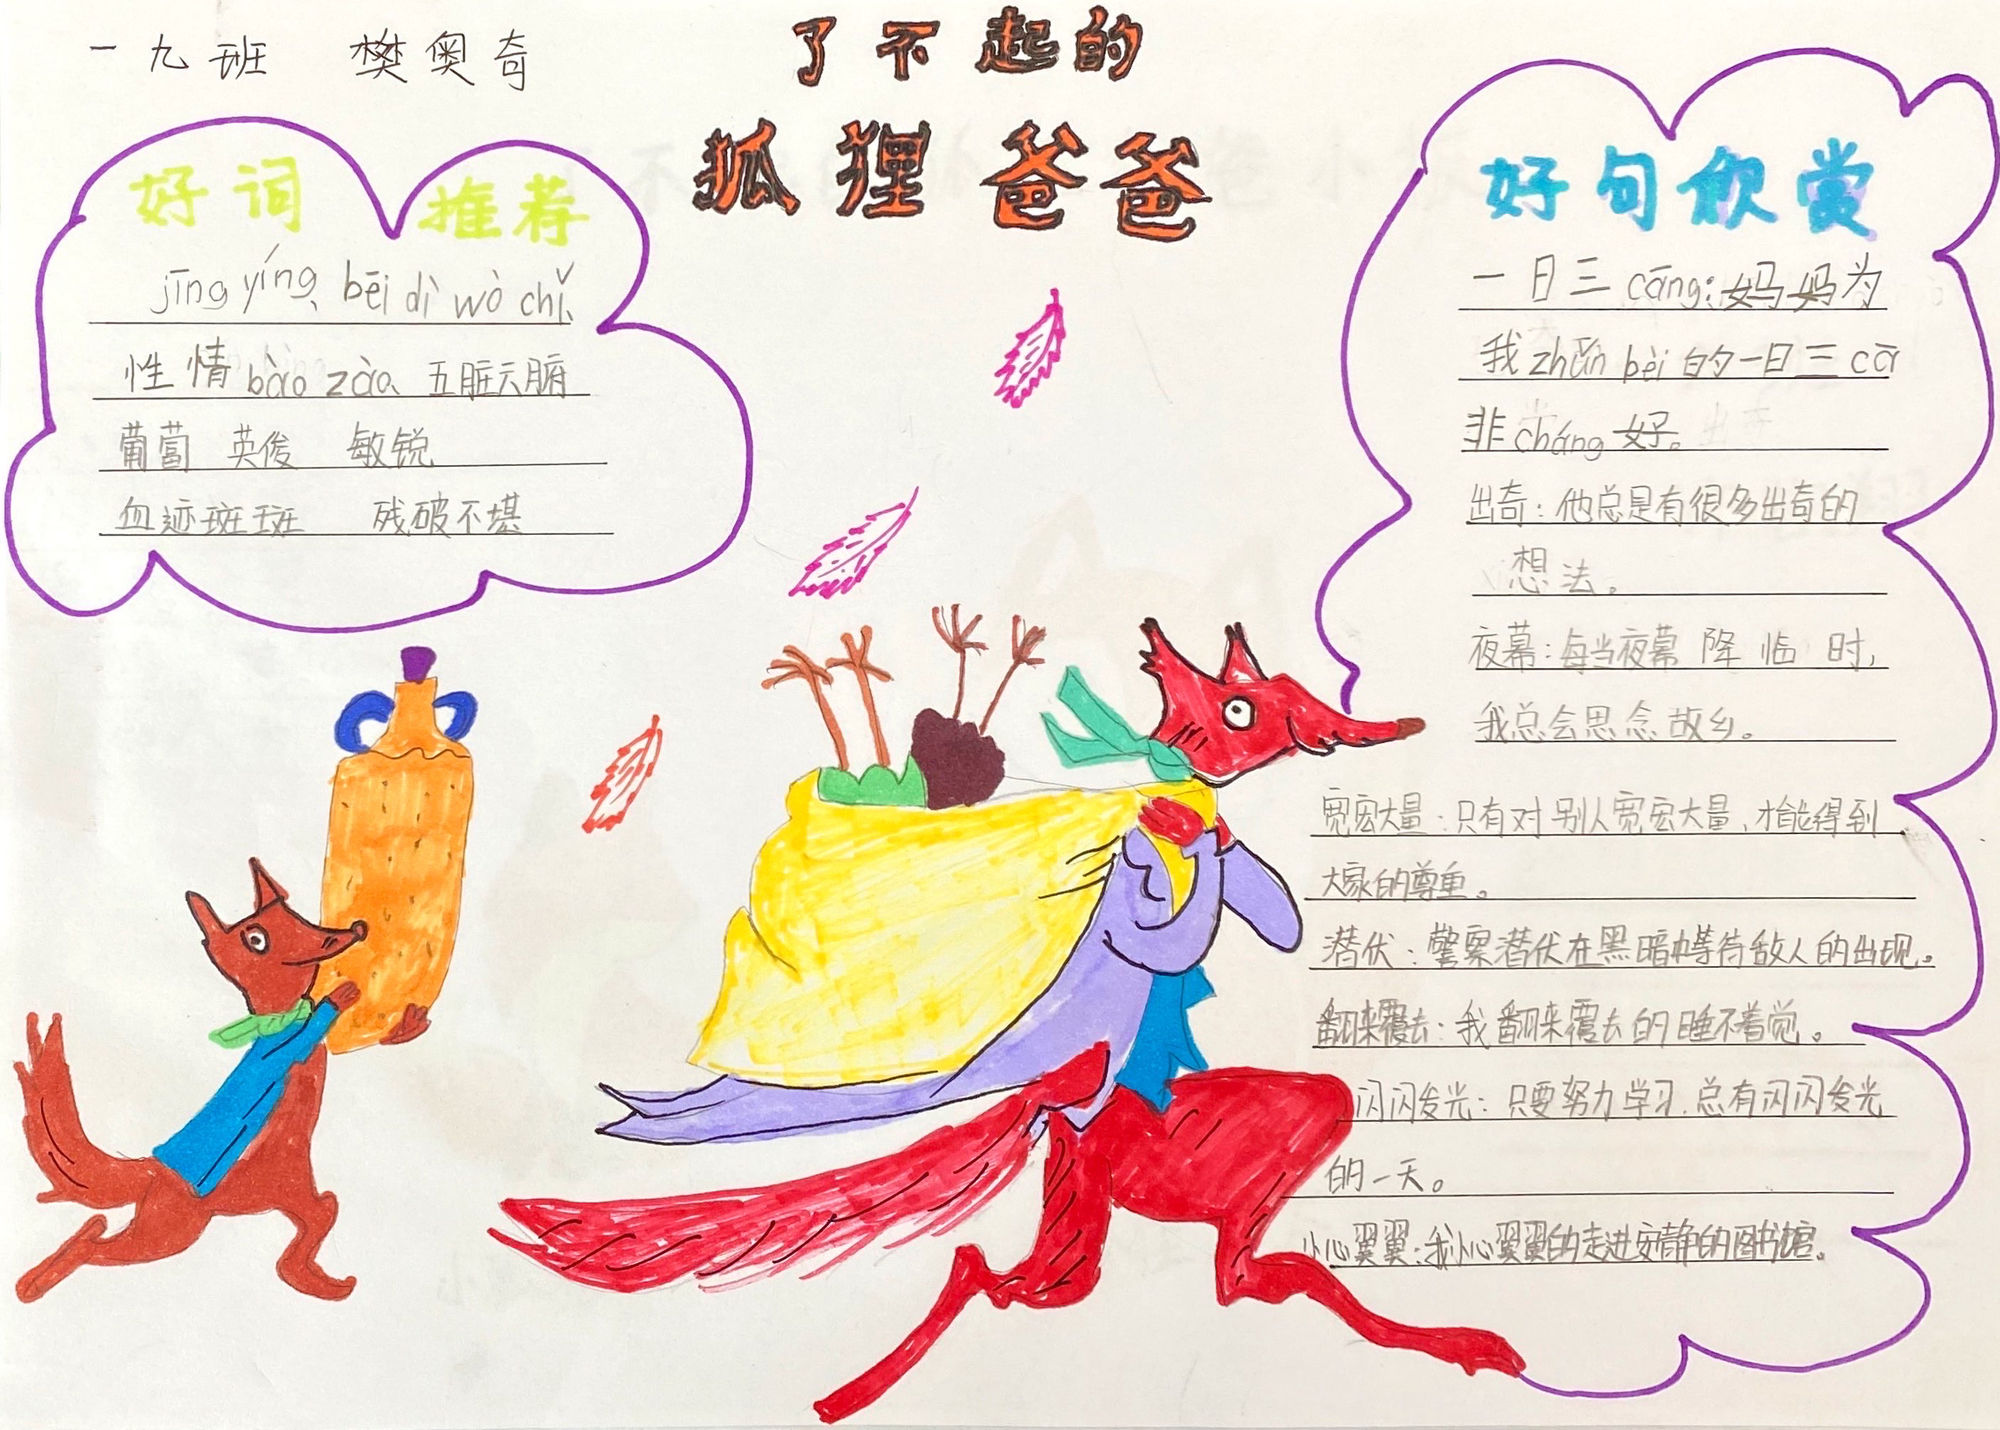 一九班 樊奥奇
了不起的
狐狸爸爸
好词 推荐
jīng yíng、bēi dì wò chǐ、
性情bào zào、五脏六腑
葡萄 英俊 敏锐
血迹斑斑 残破不堪
好句欣赏
一日三cāng:妈妈为
我zhǔn bèi的一日三cā
非cháng好。
出奇:他总是有很多出奇的
想法。
夜幕:每当夜幕降临时,
我总会思念故乡。
宽宏大量:只有对别人宽宏大量、才能得到
大家的尊重。
潜伏:警察潜伏在黑暗中等待敌人的出现。
翻来覆去:我翻来覆去的睡不着觉。
闪闪发光:只要努力学习、总有闪闪发光
的一天。
小心翼翼:我小心翼翼的走进安静的图书馆。